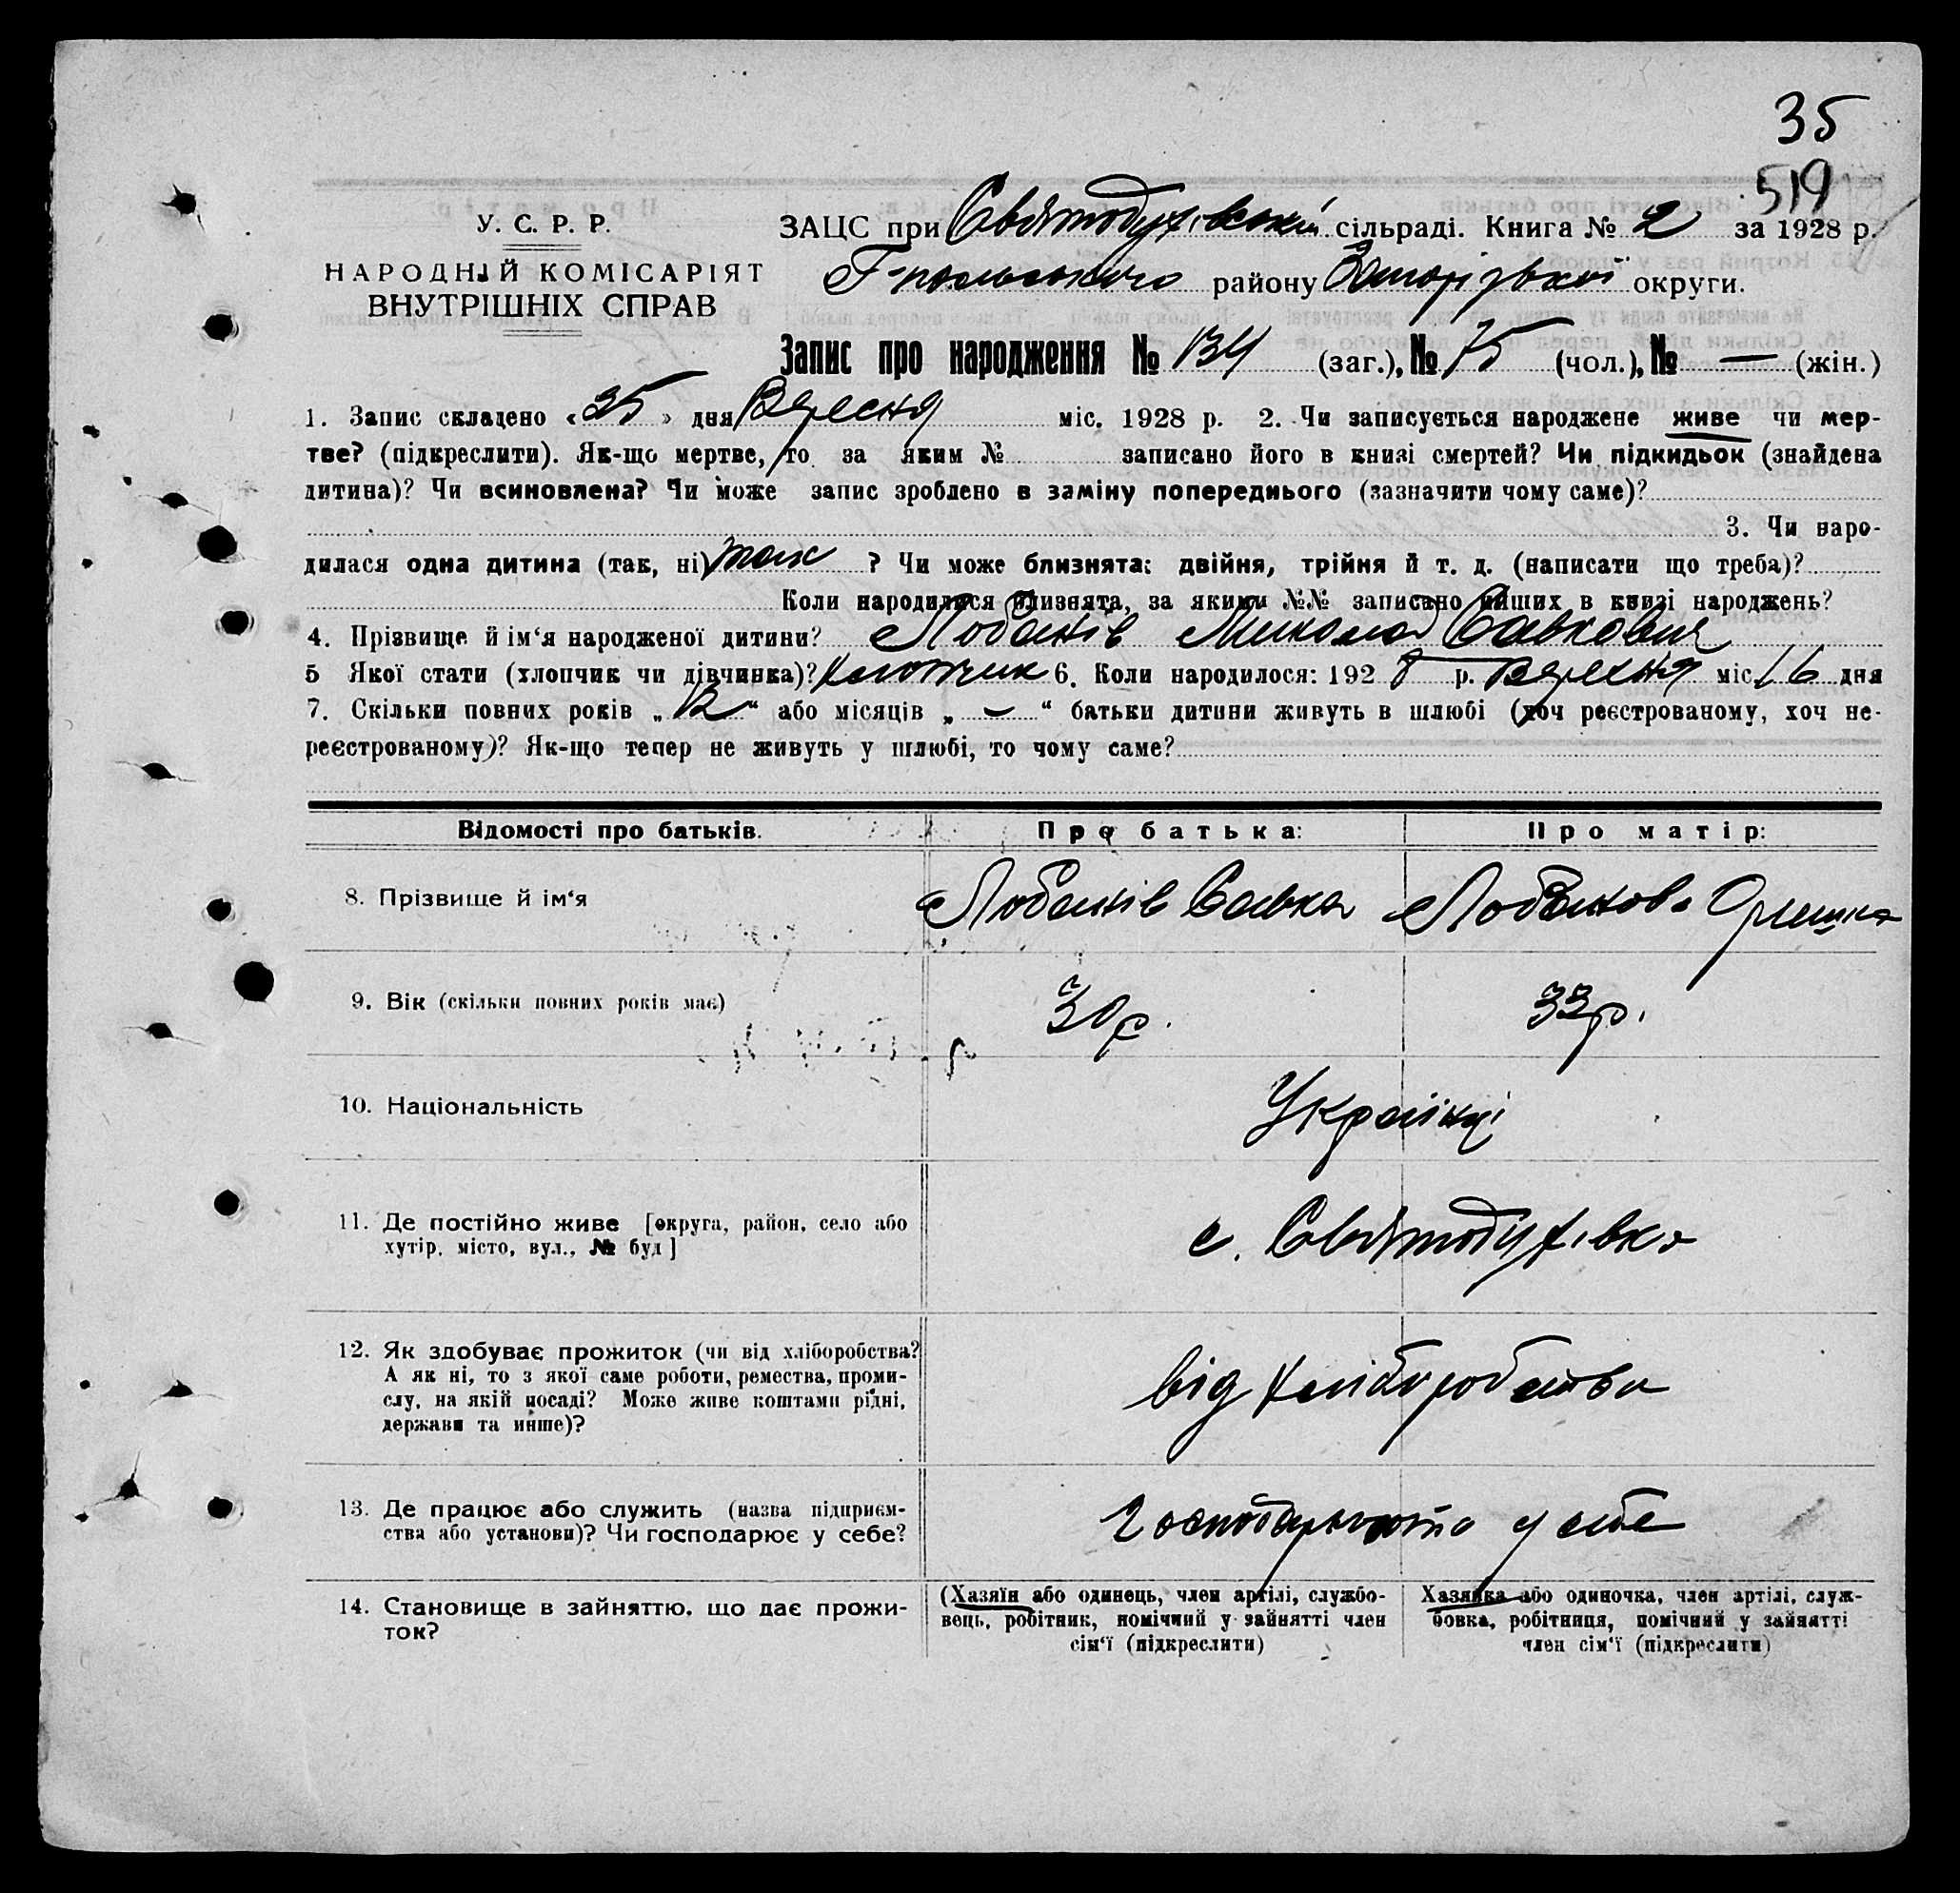 35
519
У. С. Р. Р.
НАРОДНІЙ КОМІСАРІЯТ
ВНУТРІШНІХ СПРАВ
ЗАЦС при Святодухівській сільраді. Книга № 2 за 1928 р.
Г-польського району Запорізької округи.
Запис про народження № 134 (заг.), № 75 (чол.), № — (жін.)
1. Запис складено «25» дня Вересня міс. 1928 р. 2. Чи записується народжене живе чи мер-
тве? (підкреслити). Як-що мертве, то за яким № записано його в книзі смертей? Чи підкидьок (знайдена
дитина)? Чи всиновлена? Чи може запис зроблено в заміну попереднього (зазначити чому саме)?
3. Чи наро-
дилася одна дитина (так, ні) так ? Чи може близнята: двійня, трійня й т. д. (написати що треба)?
Коли народилися близнята, за якими №№ записано инших в книзі народжень?
4. Прізвище й ім‘я народженої дитини? Лобанів Микола Савкович
5 Якої стати (хлопчик чи дівчинка)? хлопчик 6. Коли народилося: 1928 р. Вересня міс. 16 дня
7. Скільки повних років „12“ або місяців „—“ батьки дитини живуть в шлюбі (хоч реєстрованому, хоч не-
реєстрованому)? Як-що тепер не живуть у шлюбі, то чому саме?
Відомості про батьків. Про батька: Про матір:
8. Прізвище й ім‘я Лобанів Савка Лобанова Оришка
9. Вік (скільки повних років має) 30 р. 33 р.
10. Національність Українці
11. Де постійно живе [округа, район, село або
хутір, місто, вул., № буд] с. Святодухівка
12. Як здобуває прожиток (чи від хліборобства?
А як ні, то з якої саме роботи, ремества, проми-
слу, на якій посаді? Може живе коштами рідні,
держави та инше)? від хліборобства
13. Де працює або служить (назва підприєм-
ства або установи)? Чи господарює у себе? у себе
14. Становище в зайняттю, що дає прожи-
ток?
(Хазяїн або одинець, член артілі, службо-
вець, робітник, помічний у зайнятті член
сім‘ї (підкреслити)
Хазяйка або одиночка, член артілі, служ-
бовка, робітниця, помічний у зайнятті
член сім‘ї (підкреслити)